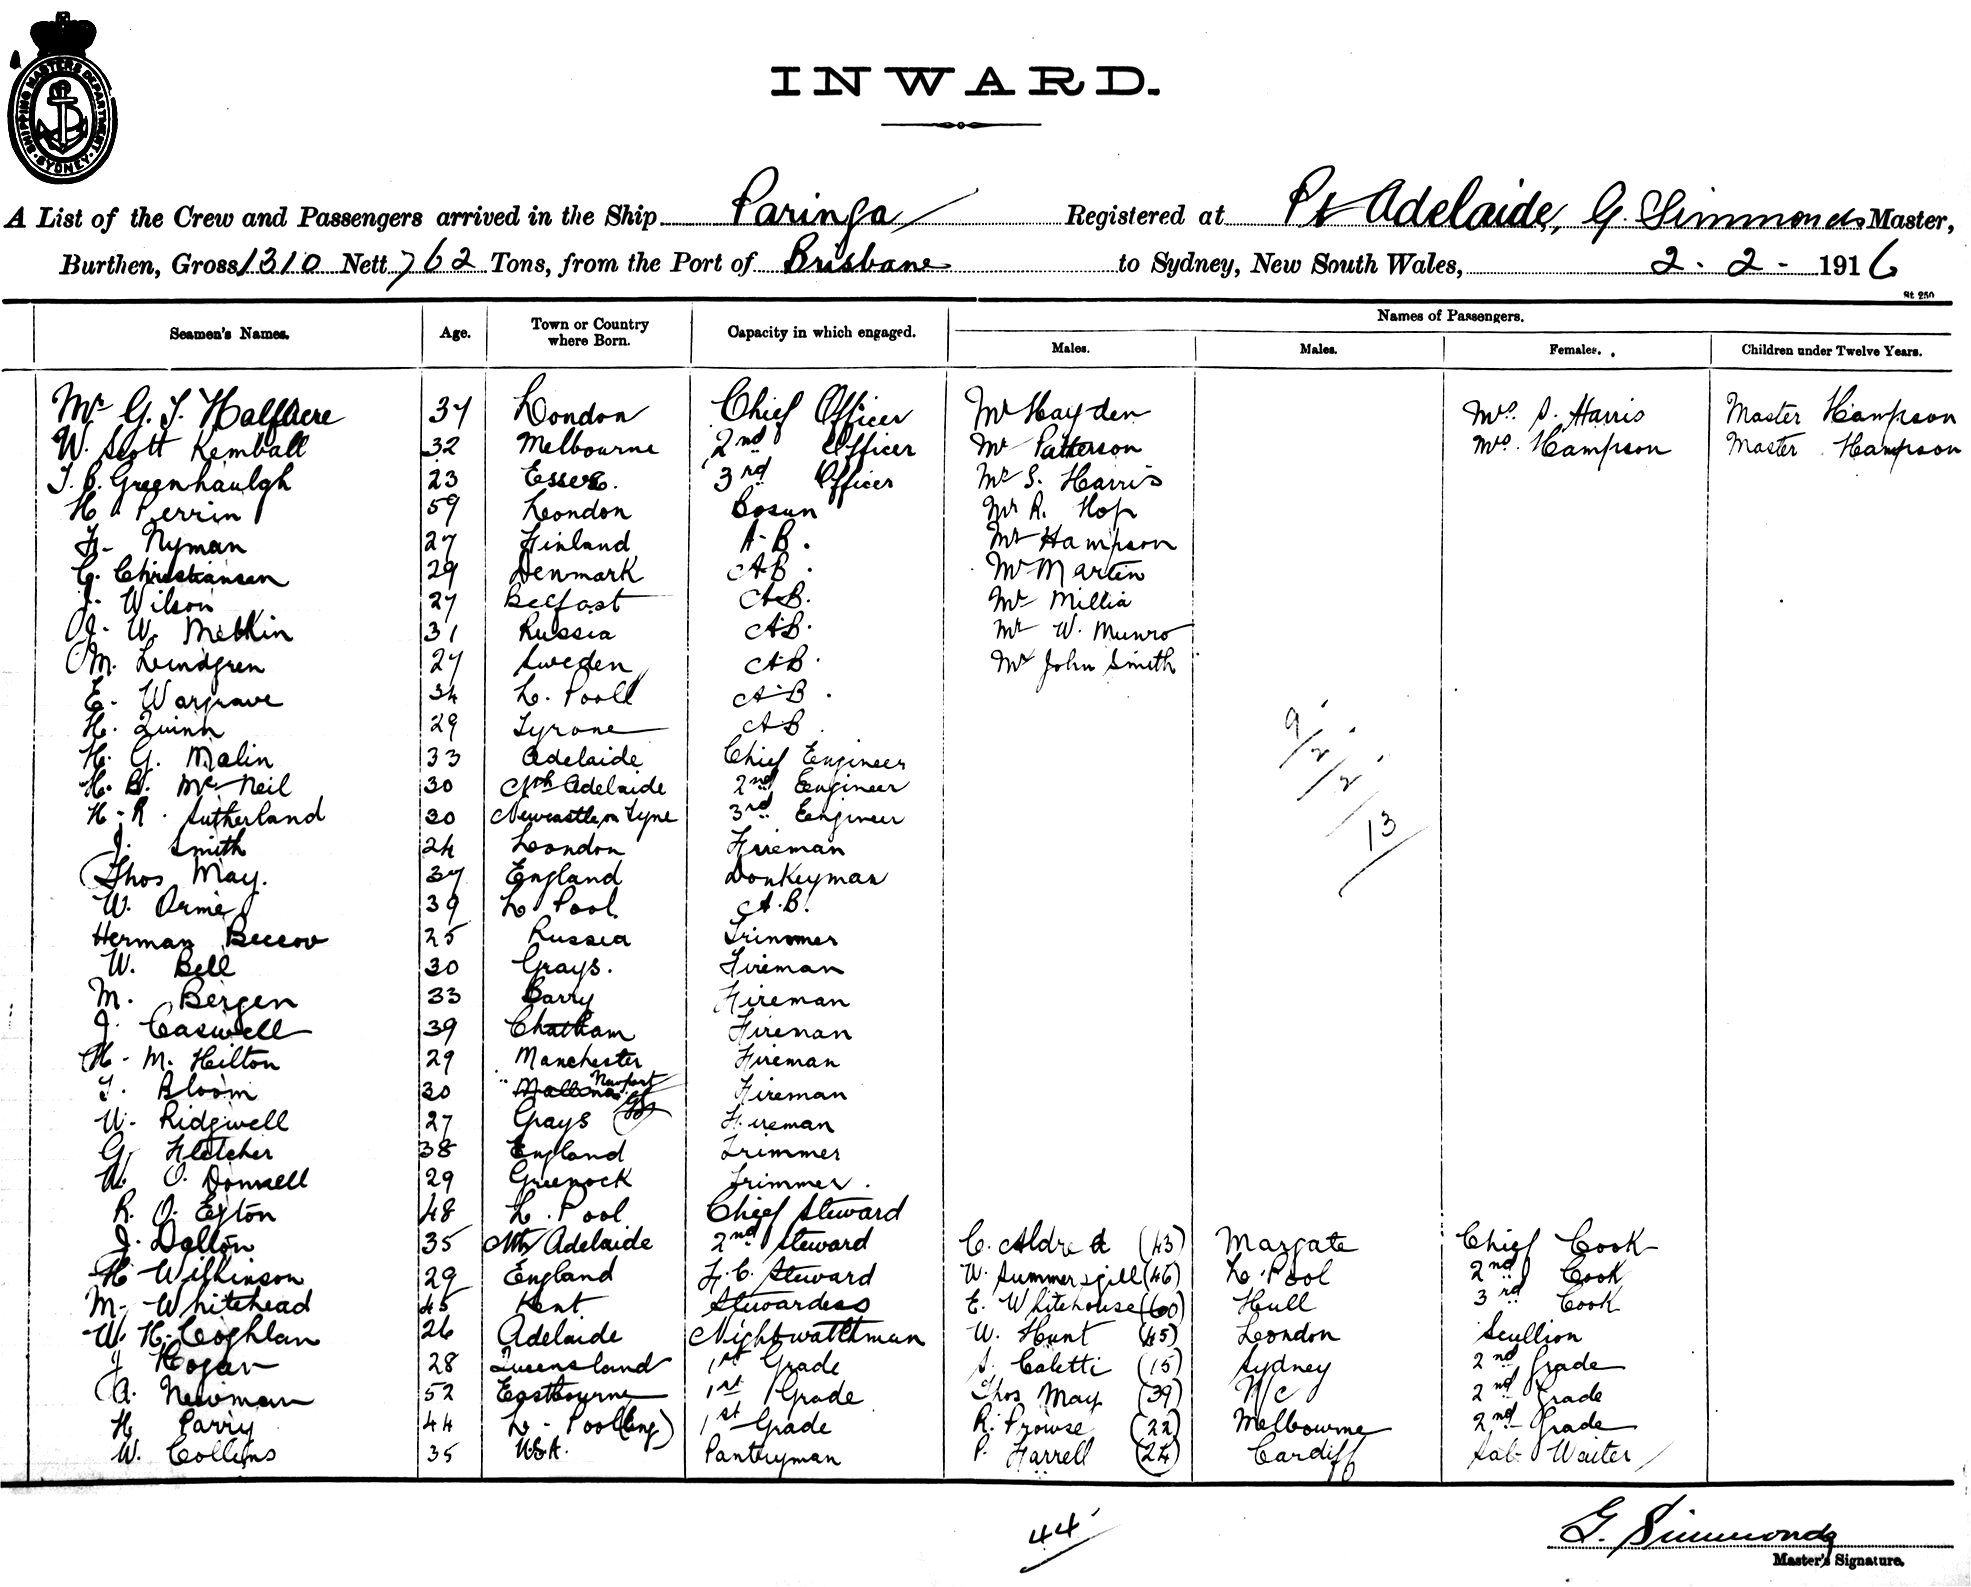 SHIPPING MASTERS DEPARTMENT. SYDNEY.
INWARD.
A List of the Crew and Passengers arrived in the Ship Paringa Registered at Pt Adelaide, G. Simmonds Master,
Burthen, Gross 1310 Nett 762 Tons, from the Port of Brisbane to Sydney, New South Wales, 2.2-1916
St 250
Seamen's Names. Age. Town or Country where Born. Capacity in which engaged. Names of Passengers.
Males. Males. Females. Children under Twelve Years.
Mr G. T. Halfacre 37 London Chief Officer Mr Hayden Mrs. S. Harris Master Hampson
W. Scott Kemball 32 Melbourne 2nd Officer Mr Patterson Mrs. Hampson Master Hampson
T. B. Greenhaulgh 23 Essex. 3rd Officer Mr S. Harris
H Perrin 59 London Bosun Mr R. Hop
Nyman 27 Finland A-B. Mr Hampson
C. Christiansen 29 Denmark AB. Mr Martin
J. Wilson 27 Belfast AB. Mr Millia
W. Metkin 31 Russia AB. Mr W. Munro
M. Lindgren 27 Sweden AB. Mr John Smith
E. Wargrave 34 L. Pool AB.
H. Quinn 29 Tyrone AB
H. G. Malin 33 Adelaide Chief Engineer
H. B. McNeil 30 Nth Adelaide 2nd Engineer
H-R. Sutherland 30 Newcastle on Tyne 3rd Engineer
J. Smith 24 London Fireman
Thos May. 37 England Donkeyman
W. Orme 39 L. Pool A.B.
Herman Beccov 25 Russia Trimmer
W. Bell 30 Grays. Fireman
M. Bergen 33 Barry Fireman
J. Caswell 39 Chatham Fireman
H-M. Hilton 29 Manchester Fireman
T. Bloom 30 Newport Fireman
W. Ridgwell 27 Grays Fireman
G. Fletcher 38 England Trimmer
W. O. Donnell 29 Greenock Trimmer.
R. O. Eyton 48 L. Pool Chief Steward
J. Dalton 35 Nth Adelaide 2nd Steward C. Aldred (43) Margate Chief Cook
H Wilkinson 29 England F.C. Steward W. Summersgill (46) L. Pool 2nd Cook
M. Whitehead 45 Kent Stewardess E. Whitehouse (60) Hull 3rd Cook
W. H. Coghlan 26 Adelaide Nightwatchman W. Hunt (45) London Scullion
J Hogan 28 Queensland 1st Grade S. Caletti (15) Sydney 2nd Grade
A. Newman 52 Eastbourne 1st Grade Thos May (39) N/c 2nd Grade
H Parry 44 L-Pool (Eng) 1st Grade R. Prowse (22) Melbourne 2nd Grade
W. Collins 35 Pantryman P. Farrell (24) Cardiff Sal. Waiter
9/2/2/13
44
G. Simmonds
Master's Signature.